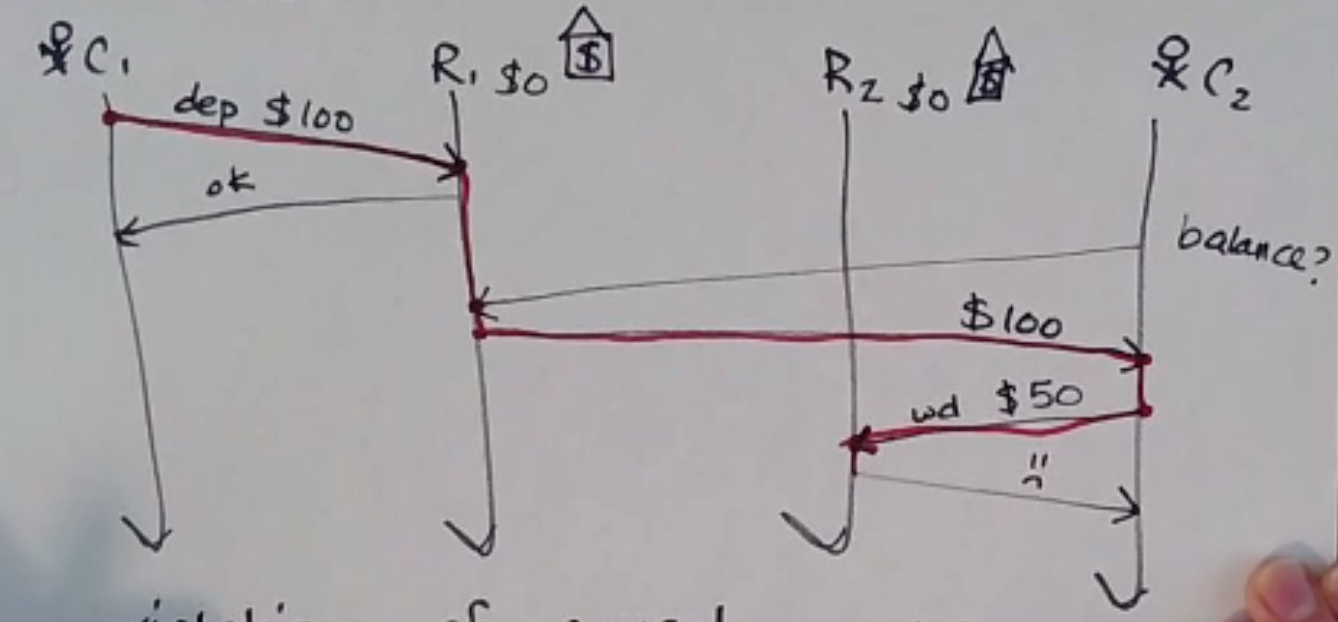 C₁
R₁ $0 $
R₂ $0 $
C₂
dep $100
ok
balance?
$100
wd $50
of